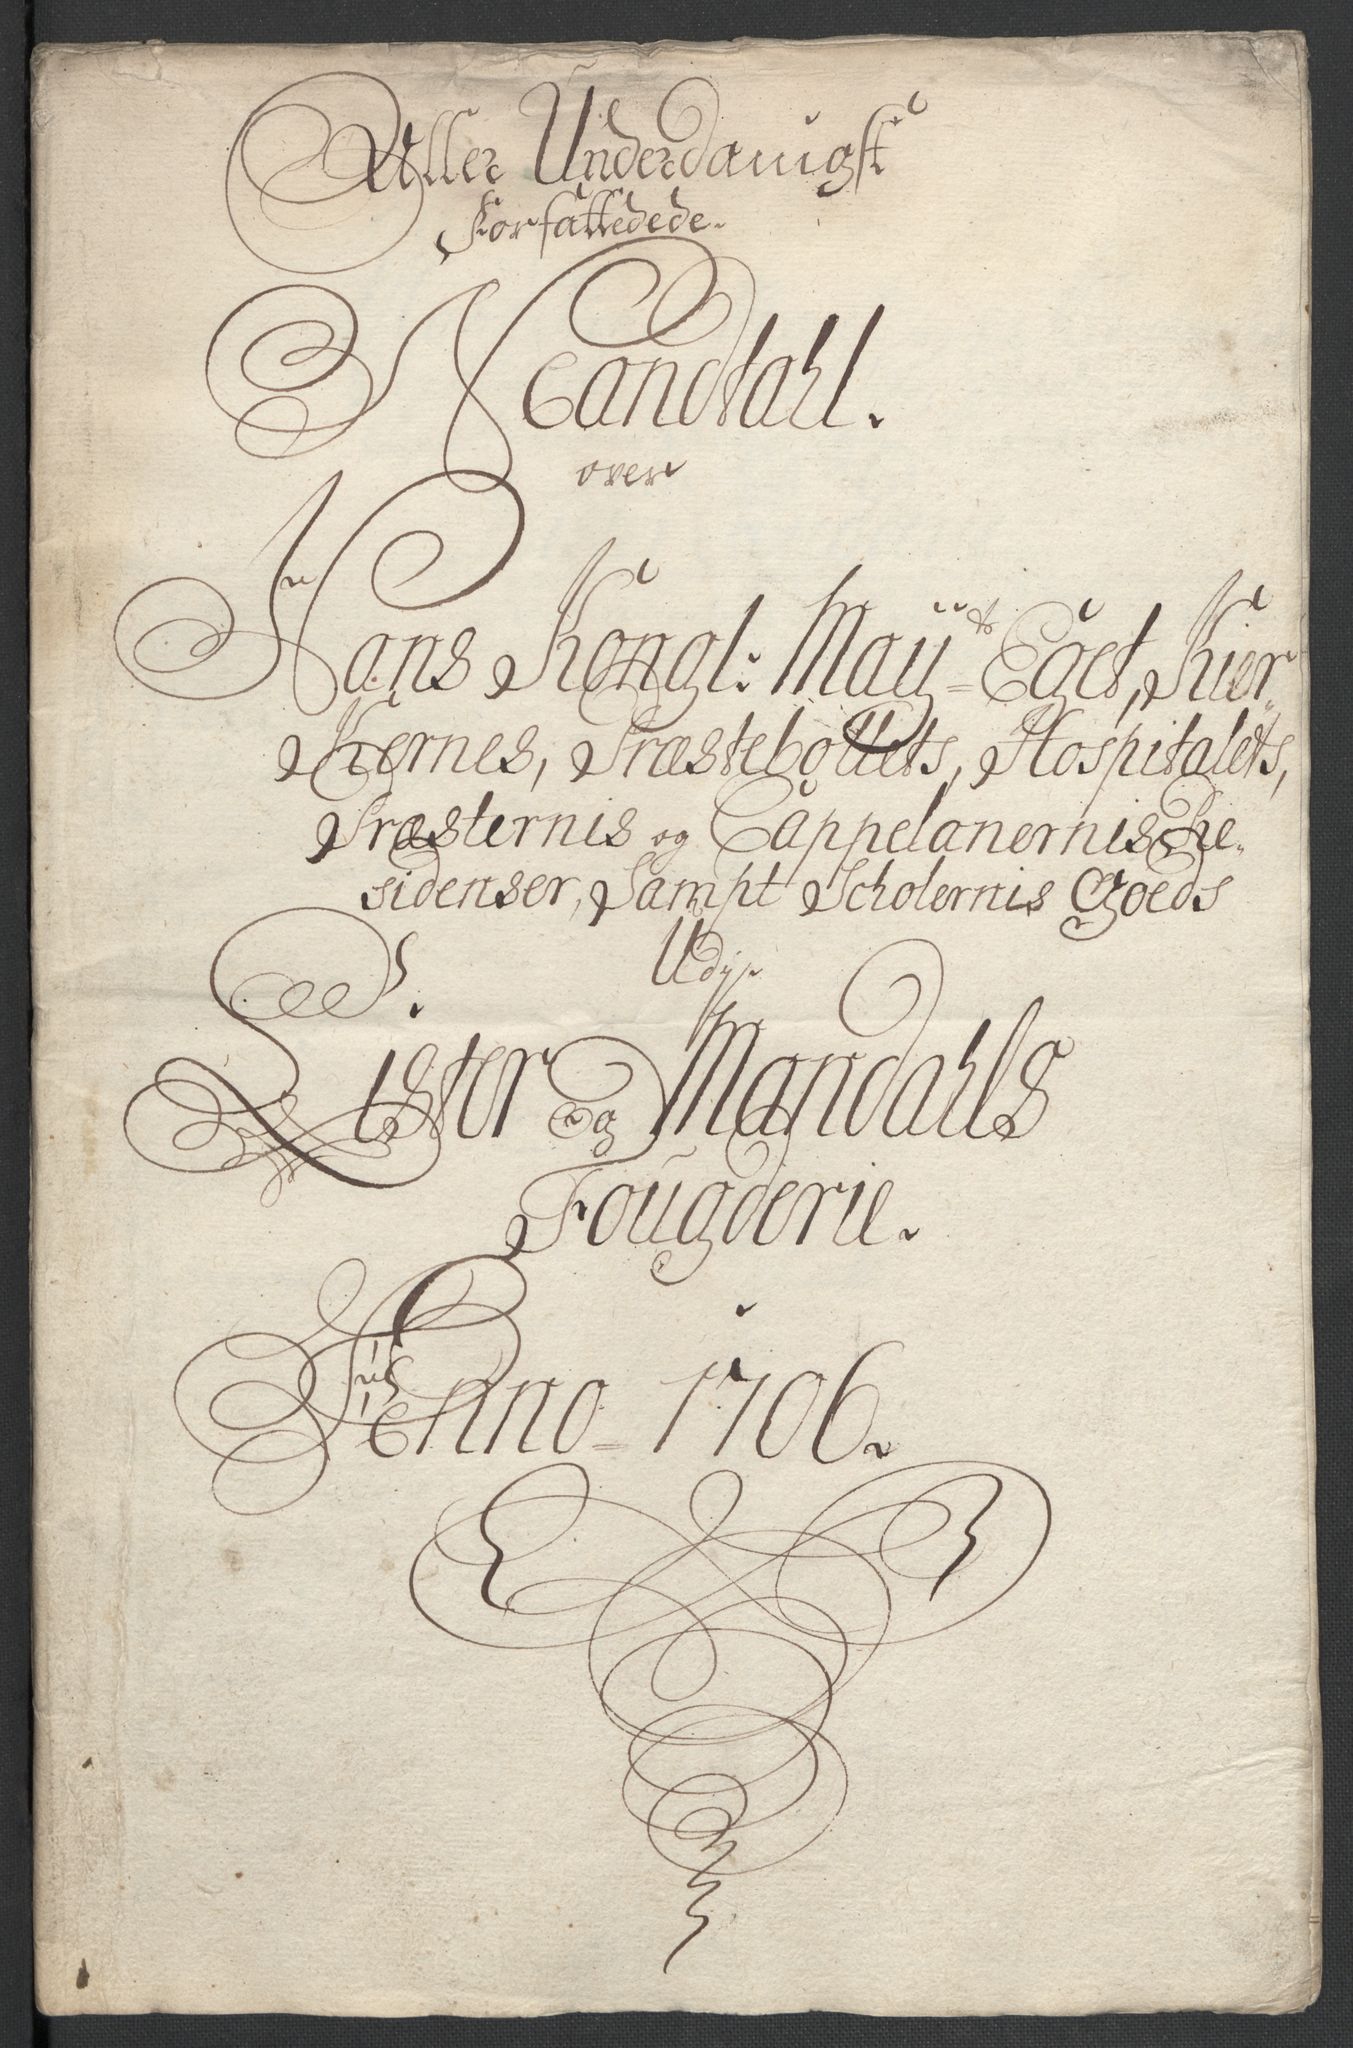 Aller Underdanigst
Forfattedede.
Mandtahl.
over
Hans Kongl: Maÿts Eget, Kier-
Kernes, Præstebollets, Hospitalets,
Præsternis og Cappelanernis Re-
sidenser, Sampt Scholernis Goeds
Udj
Lister og Mandahls
Fougderie.
Anno 1706.